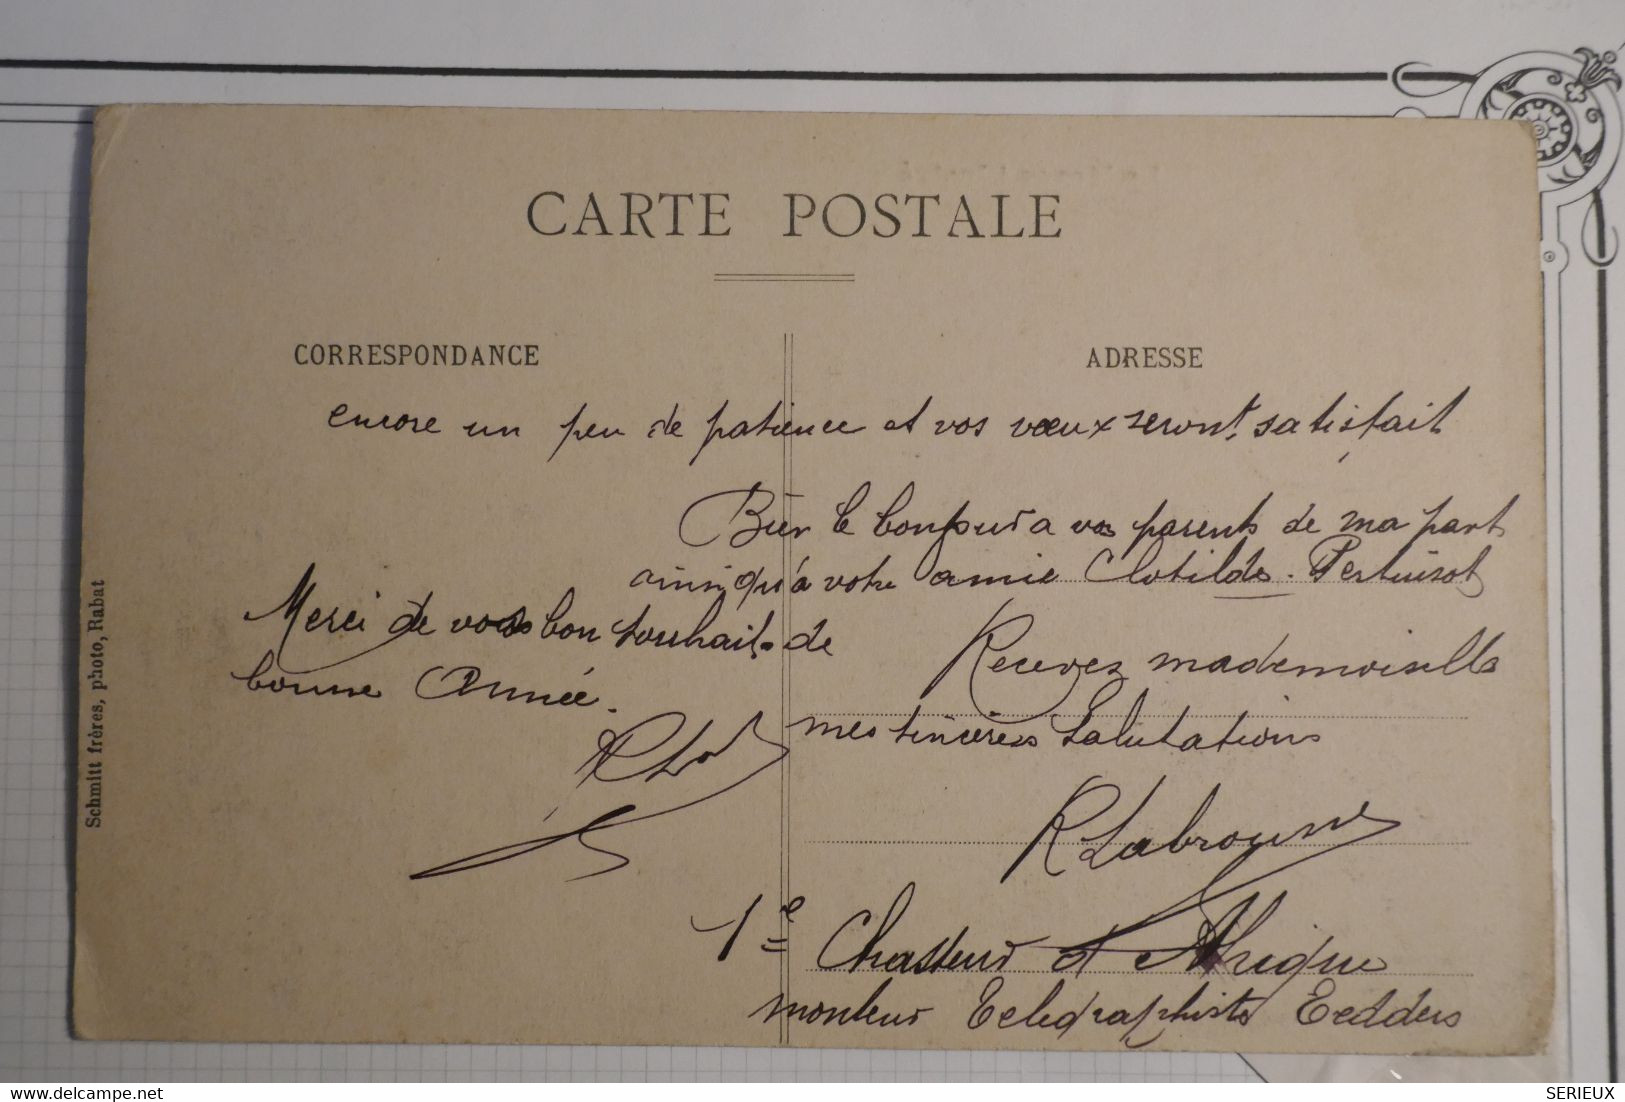 CARTE POSTALE
CORRESPONDANCE
ADRESSE
encore un peu de patience et vos vœux seront satisfait
Bien le bonjour a vos parents de ma part
ainsi qu'à votre amie Clotilde. Pertuisot
Merci de vos bon souhaits de
bonne Année.
Recevez mademoiselle
mes sincères Salutations
R Labrousse
1e Chasseur d'Afrique
monteur Telegraphiste Tedders
Schmitt frères, photo, Rabat
SERIEUX